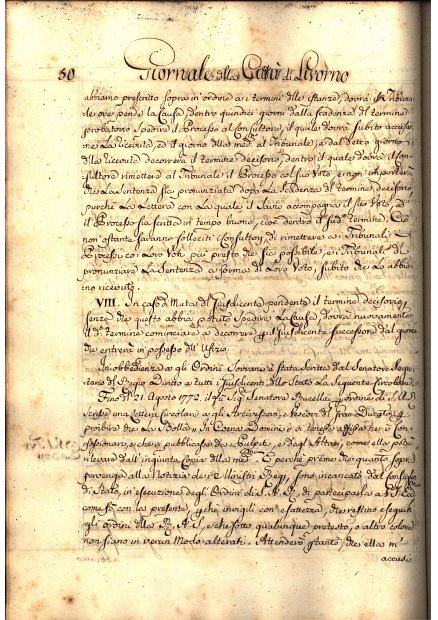 50 Giornale della Città di Livorno
abbiamo prescritto sopra in ordine a i termini delle istanze, dovrà il Tribuna-
le ove pende la Causa, dentro quindici giorni dalla scadenza del termine
probatorio spedire il Processo al Consultore, il quale dovrà subito accusar-
ne la ricevuta, ed il giorno della med.ª al Tribunale, e dal detto giorno
della ricevuta decorrerà il termine decisorio, dentro il quale dovrà il Con-
sultore rimettere al Tribunale il Processo col suo Voto, e non importerà
che la Sentenza sia pronunziata dopo la scadenza del termine decisorio,
purchè la Lettera con la quale il Savio accompagna il suo Voto, ed
il Processo sia scritta in tempo buono, cioè dentro il sud.º termine. Ciò
non ostante saranno solleciti i Consultori di rimettere a i Tribunali i
Processi co i Loro Voti più presto che sia possibile, e i Tribunali di
pronunziare la Sentenza a forma di Loro Voto, subito che Lo abbia-
no ricevuto.
VIII. In caso di Mutaz. di Giusdicente pendente il termine decisorio,
senza che questo abbia potuto spedire la Causa, dovrà nuovamente
il d.º termine cominciare a decorrere p il Giusdicente successore dal giorno
che entrerà in possesso dell' Ufizio.
In obbedienza a gli Ordini Sovrani è stata scritta dal Senatore Segre-
tario del Regio Diritto a tutti i Giusdicenti dello Stato La seguente Circolare.
Fino del 21 Agosto 1772. il Sig. Senatore Rucellai p ordine di S. A. R.
scrisse una Lettera Circolare a gli Arcivescovi, e Vescovi del Gran Ducato p
proibire che La Bolla In Coena Domini si tenesse affissa ne i Con-
fessionari, e che si pubblicasse da i Pulpiti, e dagl' Altari, come ella potrà
rilevare dall' inquinta Copia della med.ª E perchè preme che quanto sopra
pervenga alla Notizia de i Ministri Regj, sono incaricato dal Consiglio
di Stato, in esecuzione degl' Ordini di S. A. R., di parteciparla a
come fò con la presente, p chè invigili con esattezza, che restino eseguiti
gli ordini della R. A. S., e che sotto qualunque pretesto, o altro colore
non siano in verun Modo alterati. Attenderò p tanto, che ella m'
accusi